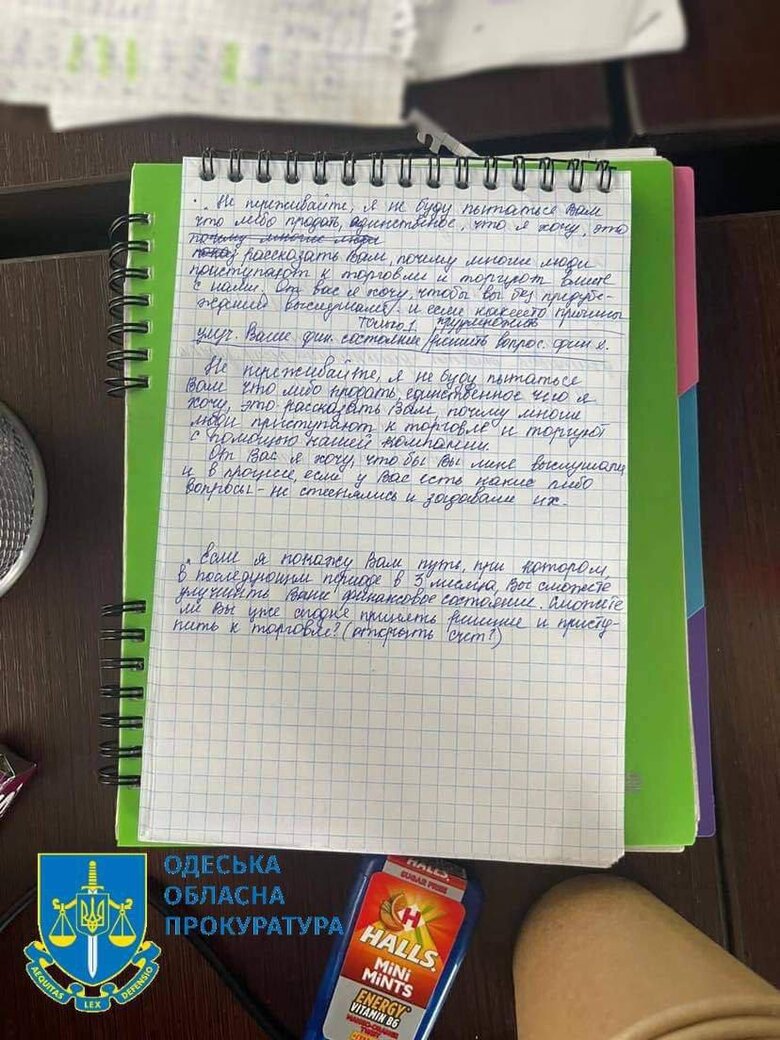 . Не переживайте, я не буду пытаться Вам
что либо продать, единственное, что я хочу, это
почему многие люди
рассказать Вам, почему многие люди
приступают к торговли и торгуют
с нами. От вас я хочу, чтобы вы без
выслушали и если причины
только 1.
улуч. Ваше фин. состояние/решить вопрос. фин
Не переживайте, я не буду пытаться
Вам что либо продать, единственное чего я
хочу, это рассказать Вам, почему многие
люди приступают к торговле и торгуют
с помощью нашей компании.
От Вас я хочу, чтобы Вы мне выслушали
и в процессе, если у Вас есть какие либо
вопросы - не стеснялись и задавали их.
. Если я покажу Вам путь, при котором,
в последующем периоде в 3 месяца, Вы сможете
улучшить Ваше финансовое состояние. Сможете
ли Вы уже сегодня принять решение и присту-
пить к торговле? (открыть счет?)
ОДЕСЬКА
ОБЛАСНА
ПРОКУРАТУРА
AEQUITAS LEX DEFENSIO
HALLS
SUGAR FREE
H
HALLS.
MiNi
MiNTS
ENERGY
VITAMIN B6